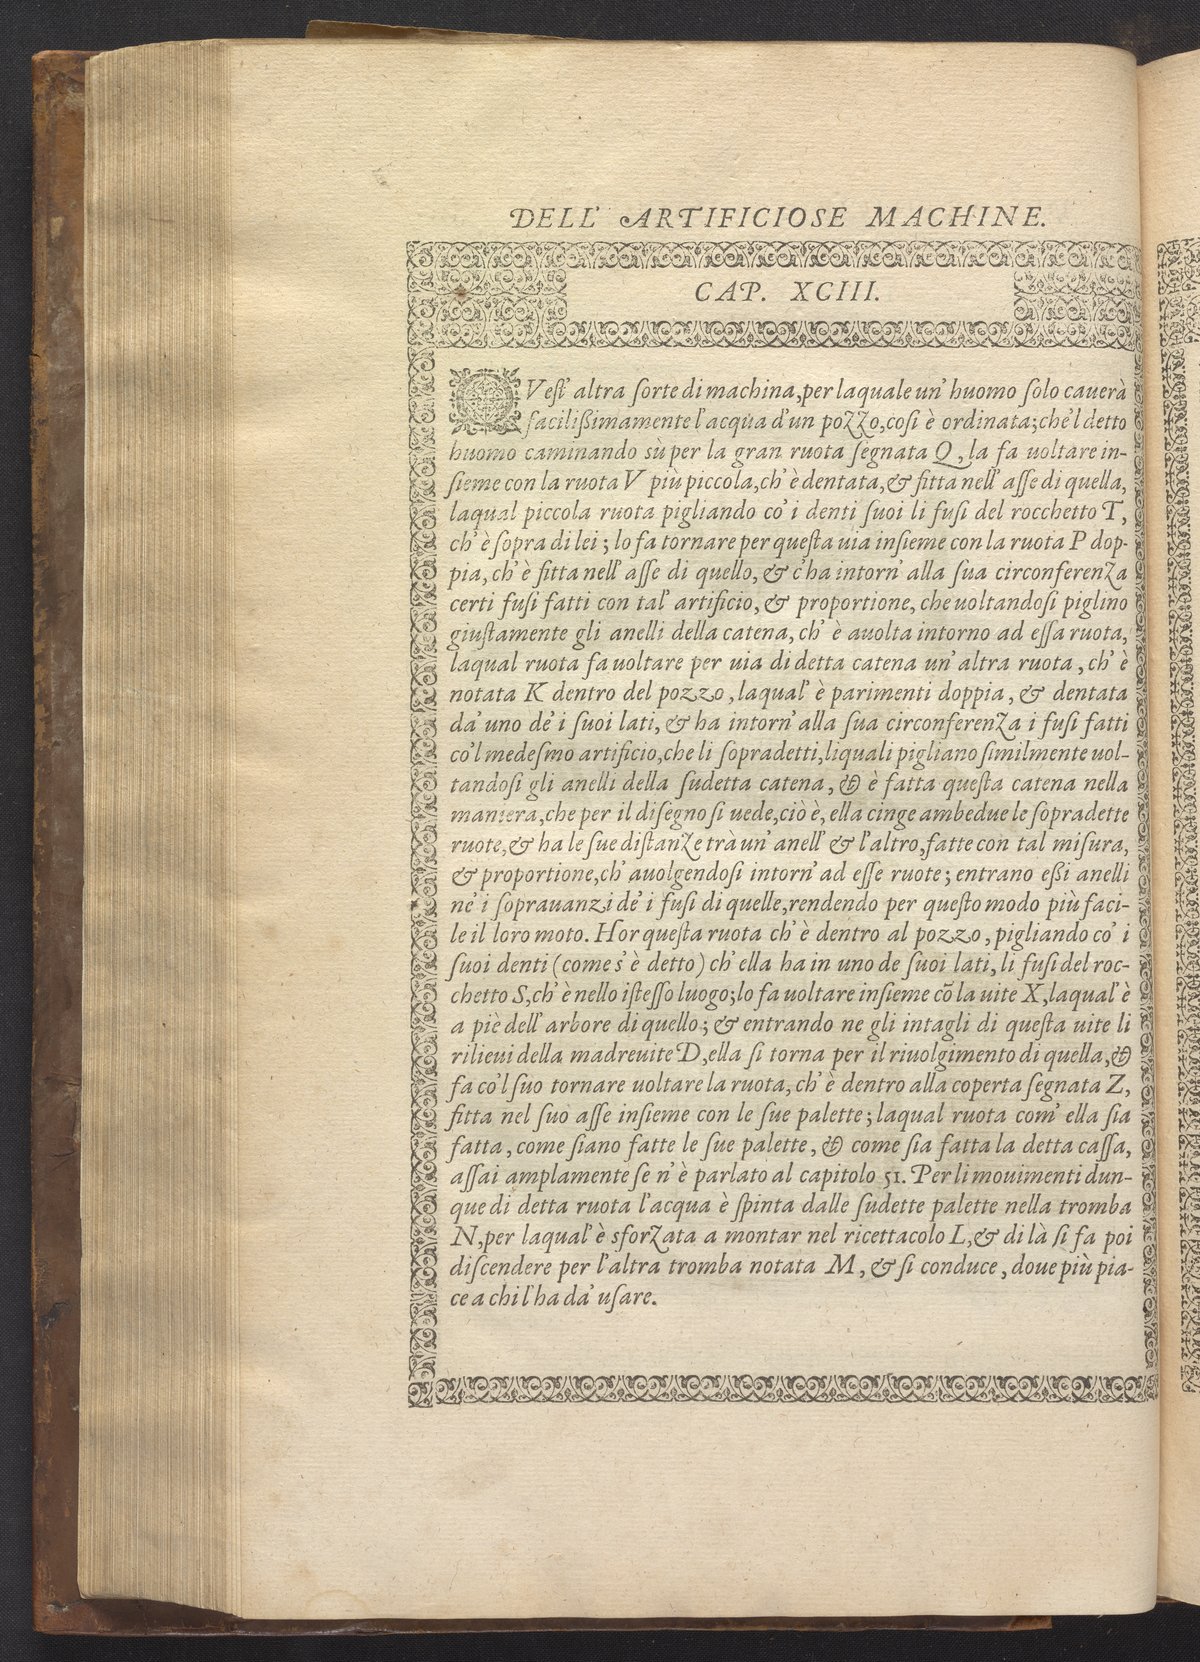 DELL' ARTIFICIOSE MACHINE.
CAP. XCIII.
QVest' altra sorte di machina, per laquale un' huomo solo cauerà
facilißimamente l'acqua d'un pozzo, così è ordinata; che'l detto
huomo caminando sù per la gran ruota segnata Q, la fa uoltare in-
sieme con la ruota V più piccola, ch'è dentata, & fitta nell' asse di quella,
laqual piccola ruota pigliando co' i denti suoi li fusi del rocchetto T,
ch' è sopra di lei; lo fa tornare per questa uia insieme con la ruota P dop-
pia, ch' è fitta nell' asse di quello, & c'ha intorn' alla sua circonferenza
certi fusi fatti con tal' artificio, & proportione, che uoltandosi piglino
giustamente gli anelli della catena, ch' è auolta intorno ad essa ruota,
laqual ruota fa uoltare per uia di detta catena un' altra ruota, ch' è
notata K dentro del pozzo, laqual' è parimenti doppia, & dentata
da' uno de' i suoi lati, & ha intorn' alla sua circonferenza i fusi fatti
co'l medesmo artificio, che li sopradetti, liquali pigliano similmente uol-
tandosi gli anelli della sudetta catena, & è fatta questa catena nella
maniera, che per il disegno si uede, ciò è, ella cinge ambedue le sopradette
ruote, & ha le sue distanze trà un' anell' & l'altro, fatte con tal misura,
& proportione, ch' auolgendosi intorn' ad esse ruote; entrano eßi anelli
ne' i soprauanzi de' i fusi di quelle, rendendo per questo modo più faci-
le il loro moto. Hor questa ruota ch' è dentro al pozzo, pigliando co' i
suoi denti (come s' è detto) ch' ella ha in uno de suoi lati, li fusi del roc-
chetto S, ch' è nello istesso luogo; lo fa uoltare insieme cõ la uite X, laqual' è
a piè dell' arbore di quello; & entrando ne gli intagli di questa uite li
rilieui della madreuite D, ella si torna per il riuolgimento di quella, &
fa co'l suo tornare uoltare la ruota, ch' è dentro alla coperta segnata Z,
fitta nel suo asse insieme con le sue palette; laqual ruota com' ella sia
fatta, come siano fatte le sue palette, & come sia fatta la detta cassa,
assai amplamente se n' è parlato al capitolo 51. Per li mouimenti dun-
que di detta ruota l'acqua è spinta dalle sudette palette nella tromba
N, per laqual' è sforzata a montar nel ricettacolo L, & di là si fa poi
discendere per l'altra tromba notata M, & si conduce, doue più pia-
ce a chi l'ha da' usare.